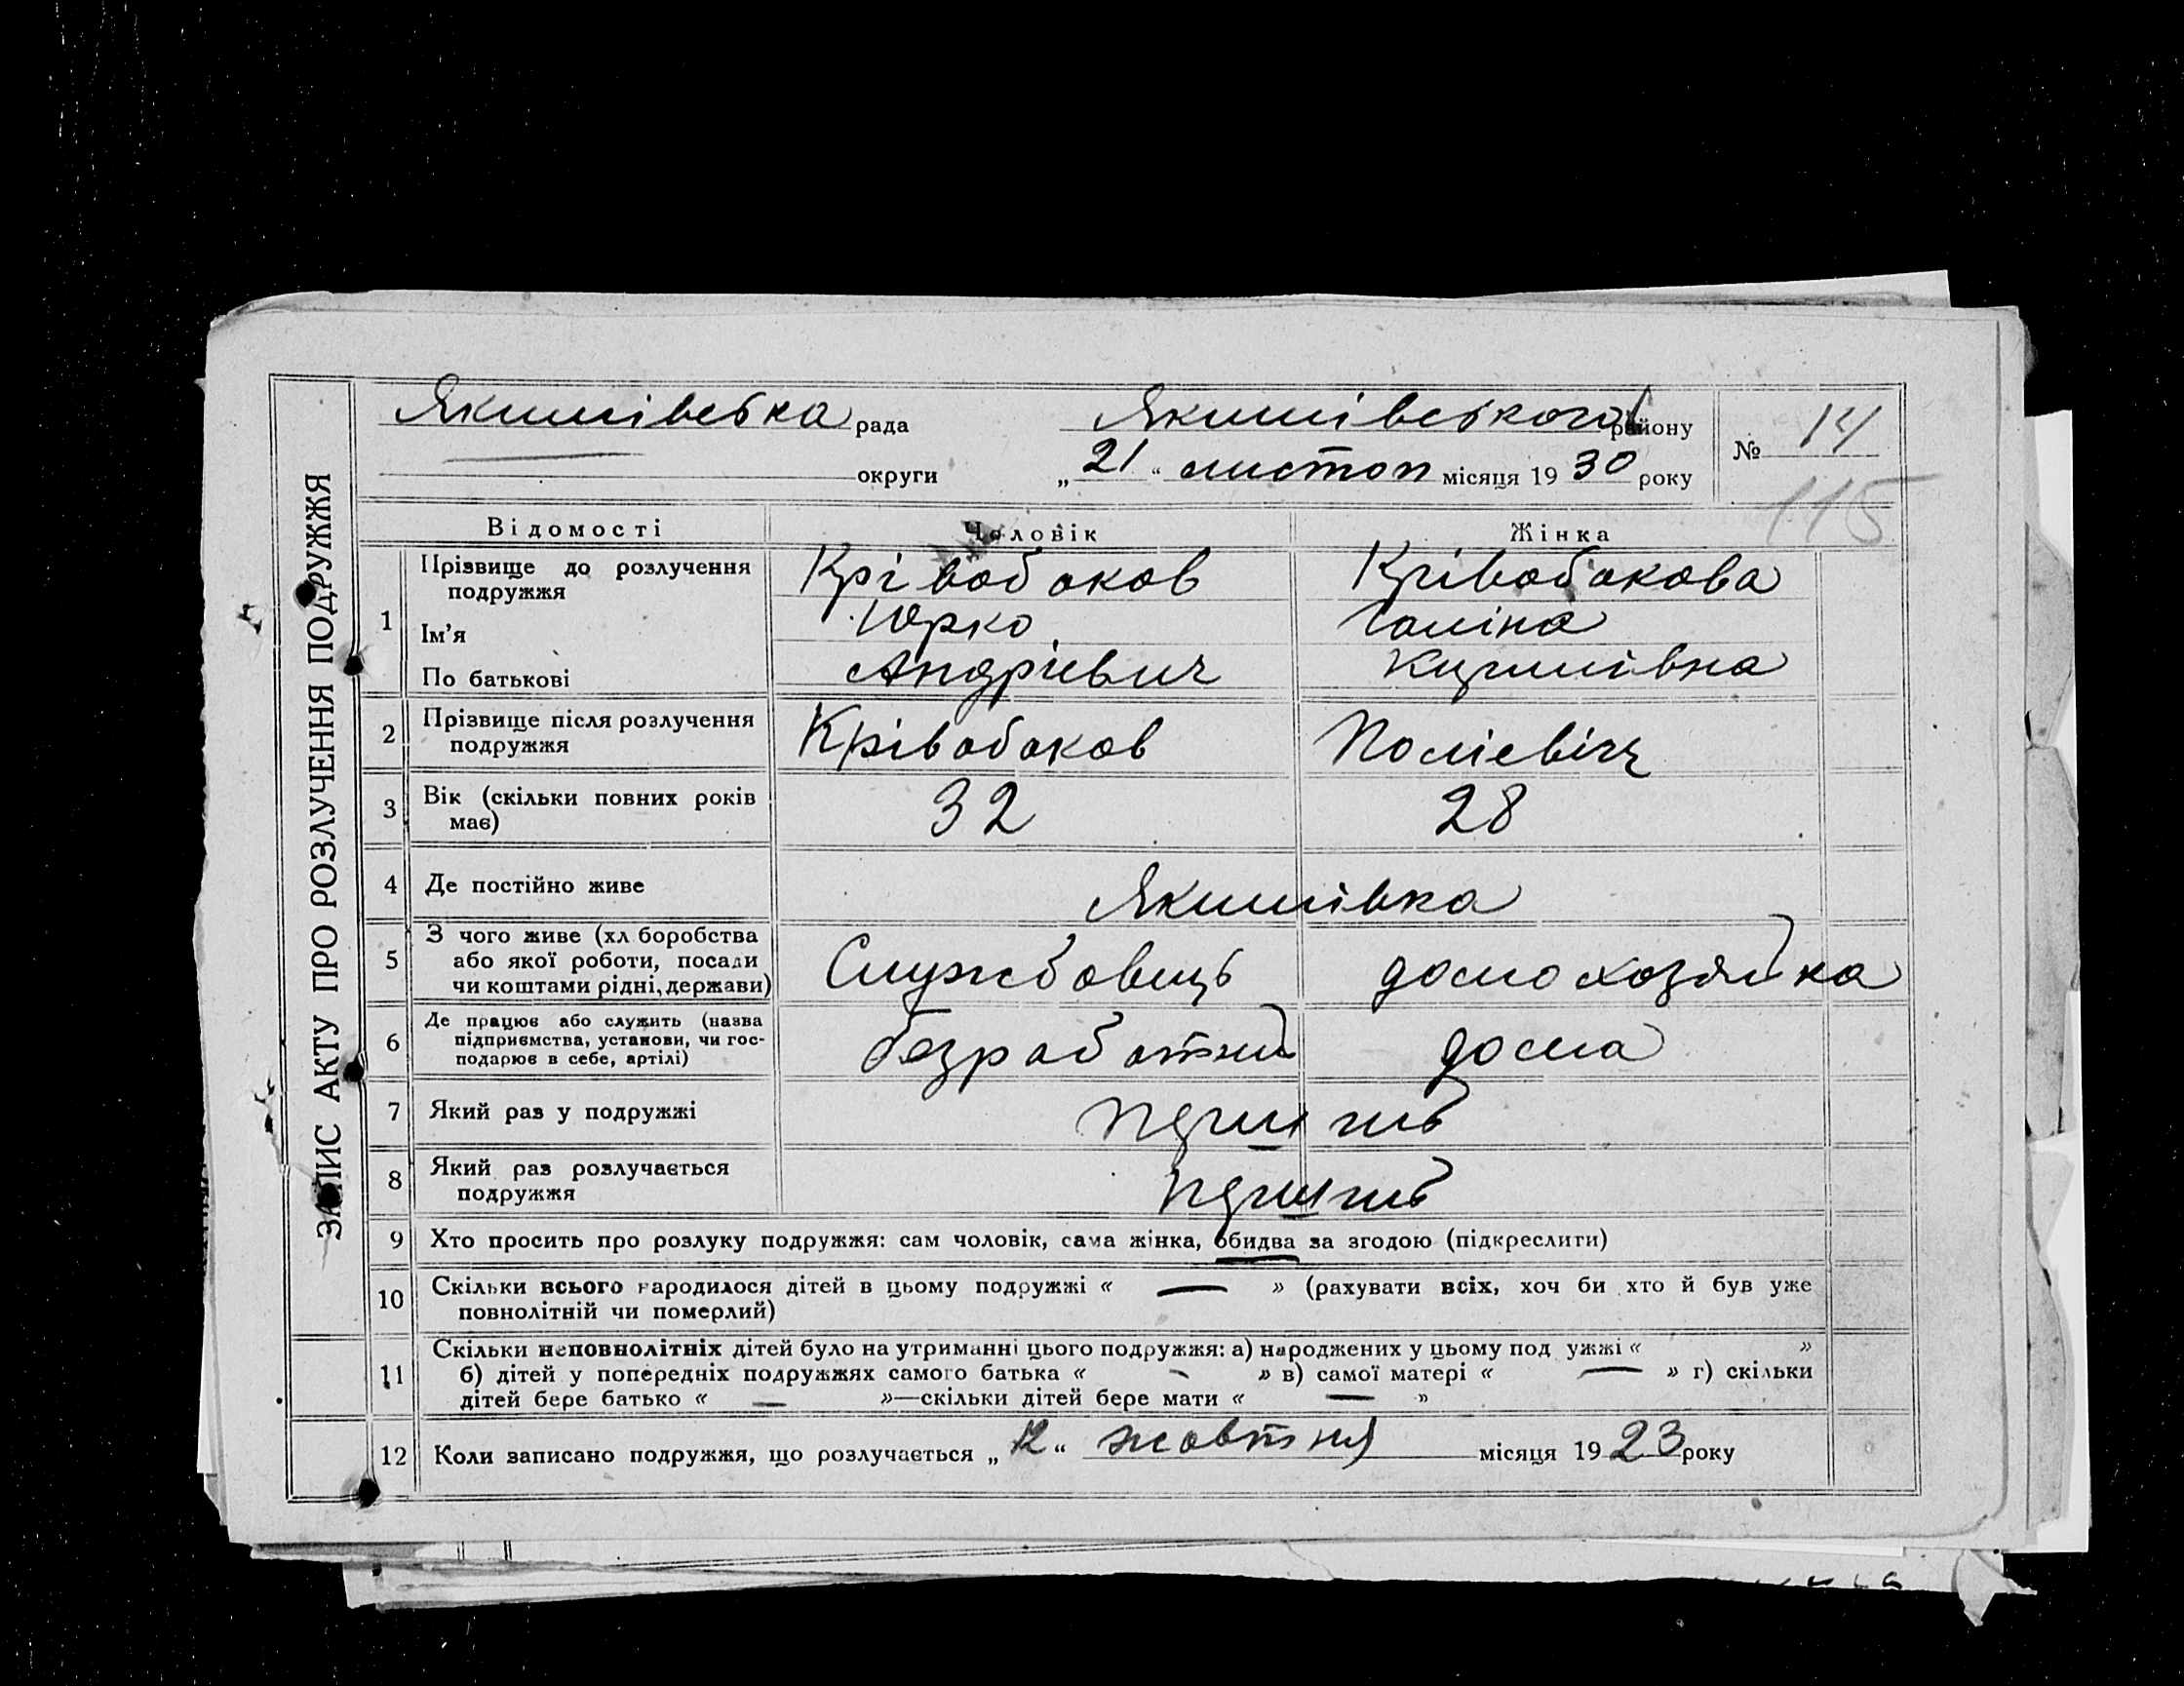 ЗАПИС АКТУ ПРО РОЗЛУЧЕННЯ ПОДРУЖЖЯ
Якимівська рада Якимівського району
округи „21“ листоп місяця 1930 року
№ 14
115
Відомості Чоловік Жінка
1 Прізвище до розлучення подружжя Крівобоков Крівобокова
Ім'я Юрко Галіна
По батькові Андрієвич
2 Прізвище після розлучення подружжя Крівобоков Полієвіч
3 Вік (скільки повних років має) 32 28
4 Де постійно живе Якимівка
5 З чого живе (хл боробства або якої роботи, посади чи коштами рідні, держави) Службовець домохозяйка
6 Де працює або служить (назва підприємства, установи, чи господарює в себе, артілі) безработний дома
7 Який раз у подружжі
8 Який раз розлучається подружжя
9 Хто просить про розлуку подружжя: сам чоловік, сама жінка, обидва за згодою (підкреслити)
10 Скільки всього народилося дітей в цьому подружжі « — » (рахувати всіх, хоч би хто й був уже
повнолітній чи померлий)
11 Скільки неповнолітніх дітей було на утриманні цього подружжя: а) народжених у цьому под ужжі « »
б) дітей у попередніх подружжях самого батька « - » в) самої матері « — » г) скільки
дітей бере батько « — »—скільки дітей бере мати « — »
12 Коли записано подружжя, що розлучається „12“ жовтня місяця 1923 року